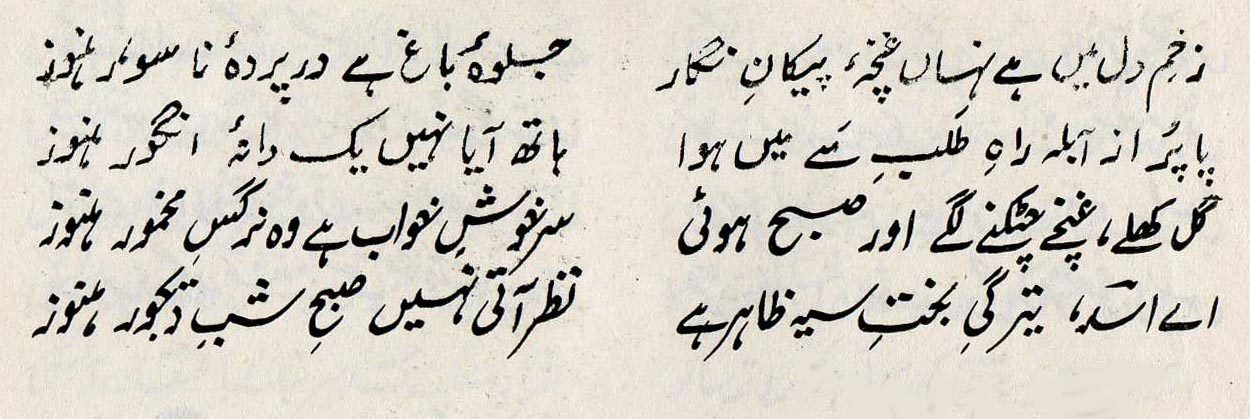 زخمِ دل میں ہے نہاں غنچۂ پیکانِ نگار جلوۂ باغ ہے در پردۂ ناسور ہنوز
پا پُر از آبلہ راہِ طَلبِ مَے میں ہوا ہاتھ آیا نہیں یک دانۂ انگور ہنوز
گل کھلے، غنچے چٹکنے لگے اور صبح ہوئی سرخوشِ خواب ہے وہ نرگسِ مخمور ہنوز
اے اسدؔ، تیرگیِ بختِ سیہ ظاہر ہے نظر آتی نہیں صبحِ شبِ دیجور ہنوز